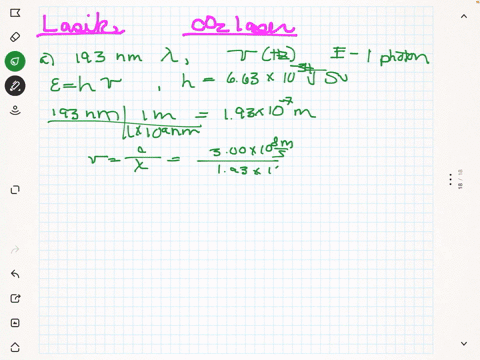 Lasik, CO2 laser
a) 193 nm λ, ν (Hz) E - 1 photon
E = hν , h = 6.63 x 10^-34 J
193 nm | 1 m / 1 x 10^9 nm = 1.93 x 10^-7 m
ν = c/λ = 3.00 x 10^8 m/s / 1.93 x 1
18 / 18